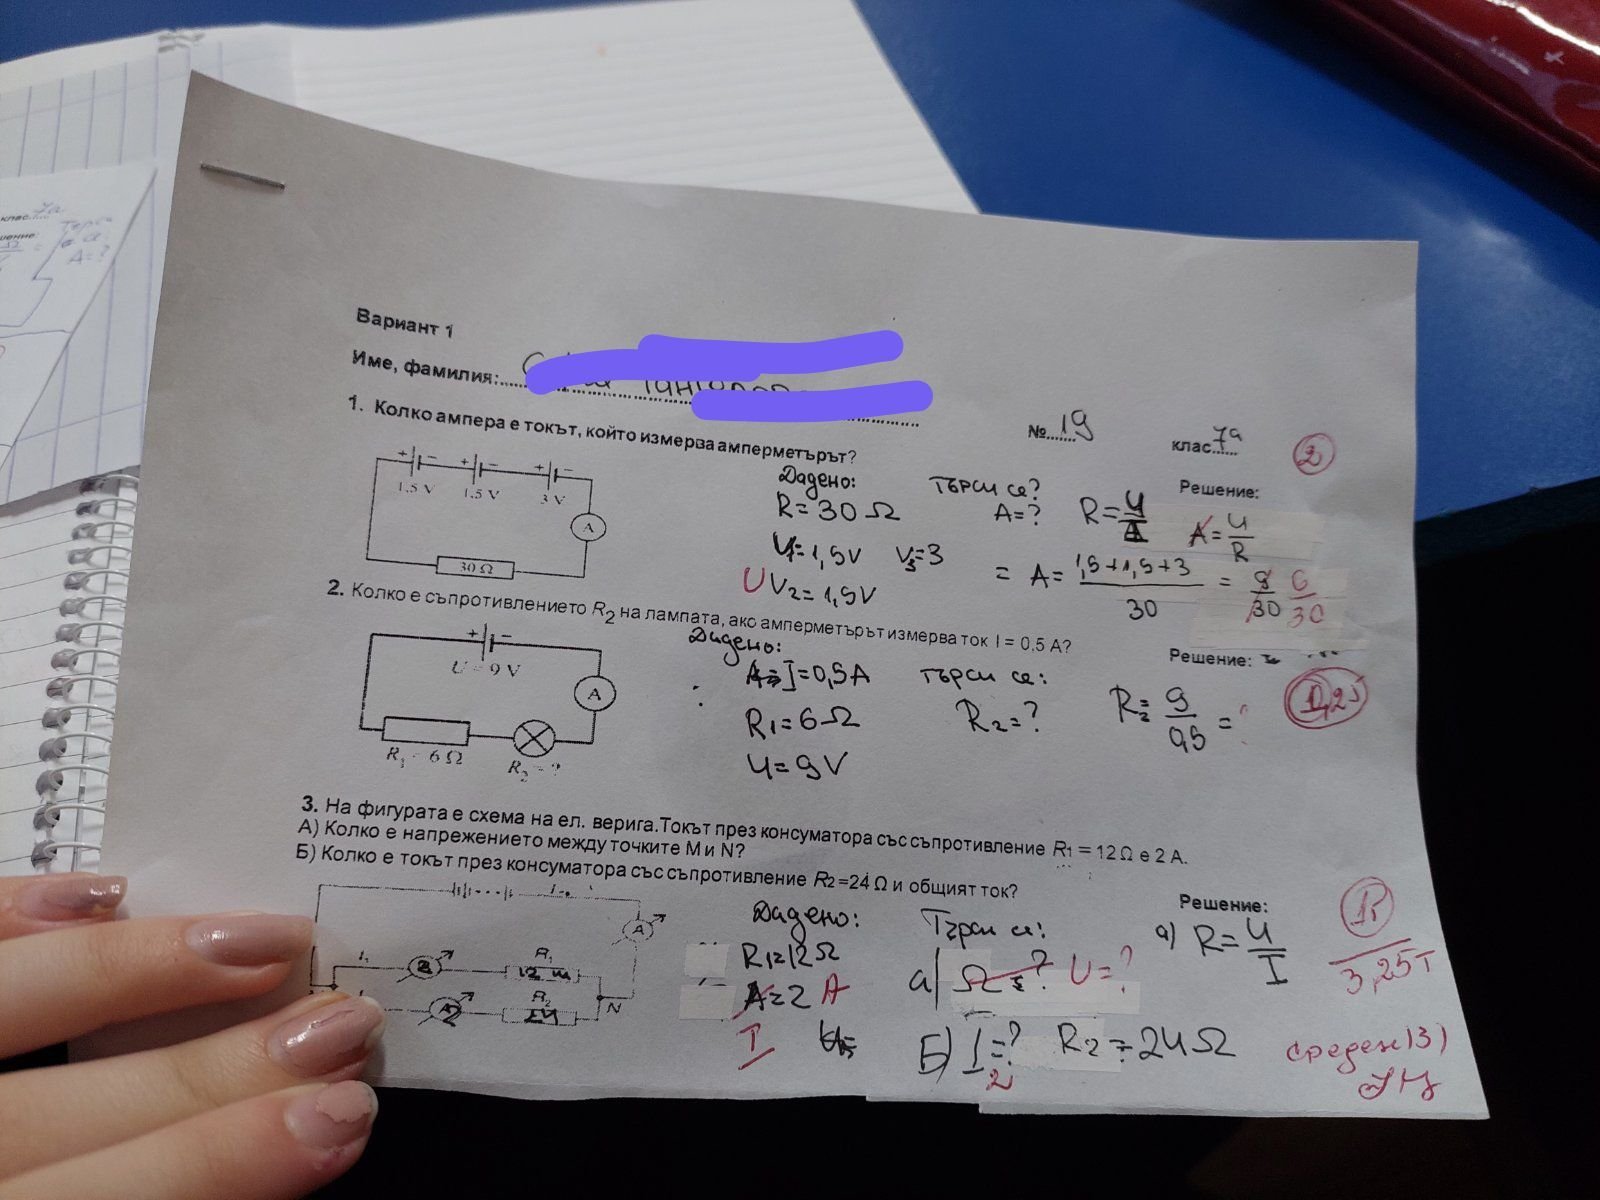 клас.....7а
Вариант 1
Име, фамилия:
№......19
клас.....7а
2
1. Колко ампера е токът, който измерва амперметърът?
+ − + − + −
1.5 V 1.5 V 3 V
A
30 Ω
Дадено:
R = 30 Ω
V=1,5V V3=3
U V2=1,5V
Търси се?
A=?
Решение:
R=U/A A=U/R
= A= 1,5+1,5+3 / 30 = 9/30 6/30
2. Колко е съпротивлението R2 на лампата, ако амперметърът измерва ток I = 0,5 A?
+ −
U = 9 V
A
R1 = 6 Ω R2 = ?
Дадено:
I=0,5A
R1=6Ω
U=9V
Търси се:
R2=?
Решение:
R2= 9/0,5 =
3. На фигурата е схема на ел. верига.Токът през консуматора със съпротивление R1 = 12 Ω е 2 A.
А) Колко е напрежението между точките M и N?
Б) Колко е токът през консуматора със съпротивление R2=24 Ω и общият ток?
A
I1 2 R1
12
A2 R2
24
N
Дадено:
R1=12Ω
A=2 A
I
Търси се:
а) Ω=? U=?
Б) I=? R2=24Ω
2
Решение:
а) R=U/I
3,25т
среден (3)